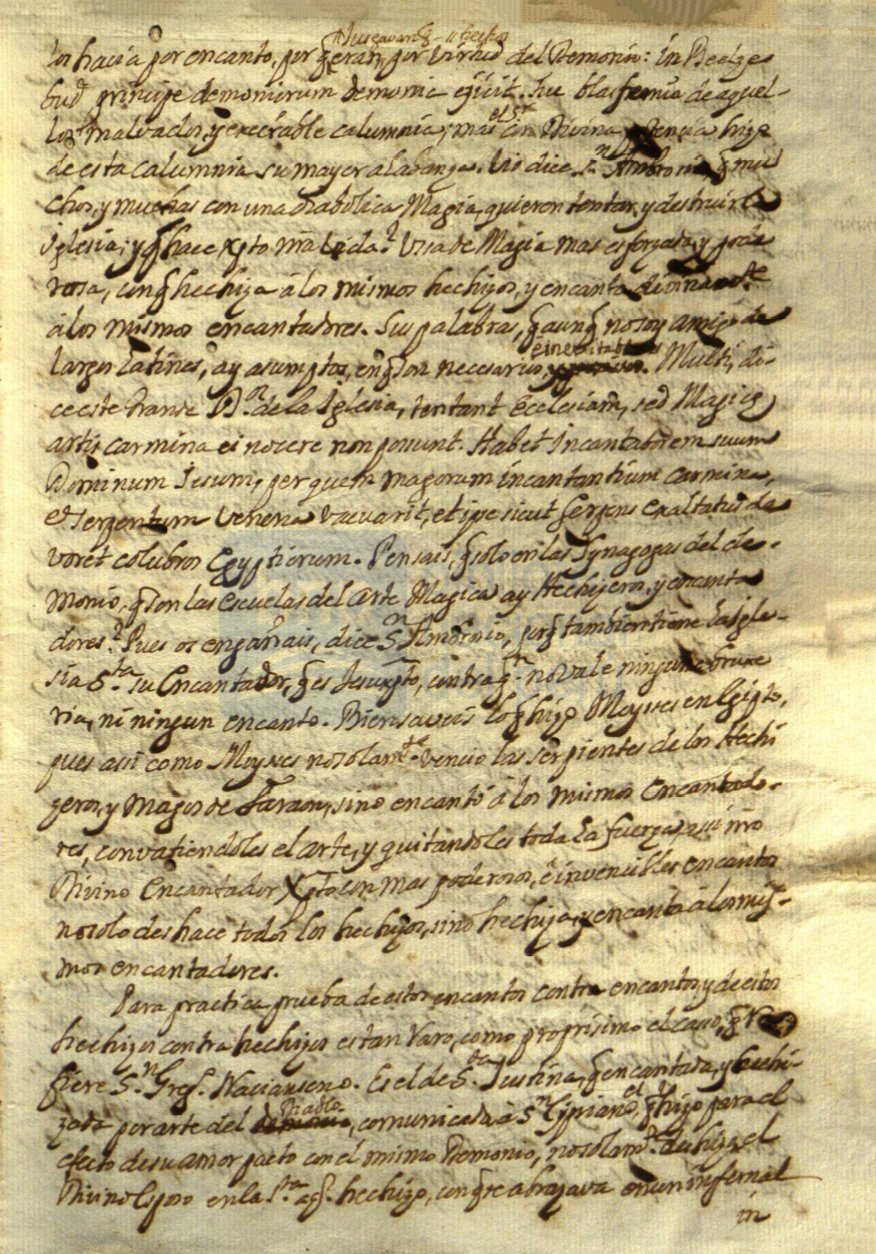 los hacia por encanto, por q̃ eran por virtud del Demonio: in Beelze
bud principe demoniorum demonia ejicit. fue blasfemia de aquel-
los malvados, y execrable calumnia; mas el Sr con Divina potencia hizo
de esta calumnia su mayor alabanza. Lo dice Sn Ambrosio q̃ mu
chos, y muchas con una diabolica Magia, quieren tentar, y destruir la
iglesia; y q̃ hace Xpto mã vida? Usa de Magia mas esforzada, y pode
rosa, con q̃ hechiza á los mismos hechizos, y encanta divinamte
á los mismos encantadores. Sus palabras, q̃ aunq̃ no soy amigo de
largos latines, ay asumptos, en q̃ son necesarios, é inevitables. Multi, di-
ce este Grande Dn de la Iglesia, tentant Ecclesiam, sed Magicæ
artis carmina ei nocere non possunt. Habet Incantatorem suum
Dominum Jesum, per quem magorum incantantium carmina,
et serpentum venena vacuavit, et ipse sicut serpens exaltatus de
voret colubros Egyptiorum. Pensais, q̃ solo en las Synagogas del de-
monio, q̃ son las escuelas del Arte Magica ay Hechizeros, y encanta
dores? Pues os engañais, dice Sn Ambrosio, porq̃ tambien tiene la igle-
sia Sta su Encantador, q̃ es Jesuxpto, contra qn no vale ninguna bruxe
ria, ni ningun encanto. Bien saveis lo q̃ hizo Moyses en Egipto,
pues asi como Moyses no solamte vencio las serpientes de los Hechi
zeros, y Magos de Faraon, sino encantó á los mismos Encantado-
res, convatiendoles el arte, y quitandoles toda la fuerza, asi nrõ
Divino Encantador Xpto con mas poderosos, é invencibles encantos
no solo deshace todos los hechizos, sino hechiza, y encanta á los mis-
mos encantadores.
Para practica prueba de estos encantos contra encantos, y de estos
hechizos contra hechizos es tan raro, como proprisimo el caso, q̃ re
fiere Sn Greg. Nacianseno. Es el de Sta Justina, q̃ encantada, y hechi-
zada por arte del Diablo, comunicada á Sn Cipriano, el q̃ hizo para el
efecto de su amor pacto con el mismo Demonio, no solamte deshizo el
Divino Esposo en la Sta aql hechizo, con q̃ se abrazava en un infernal
in